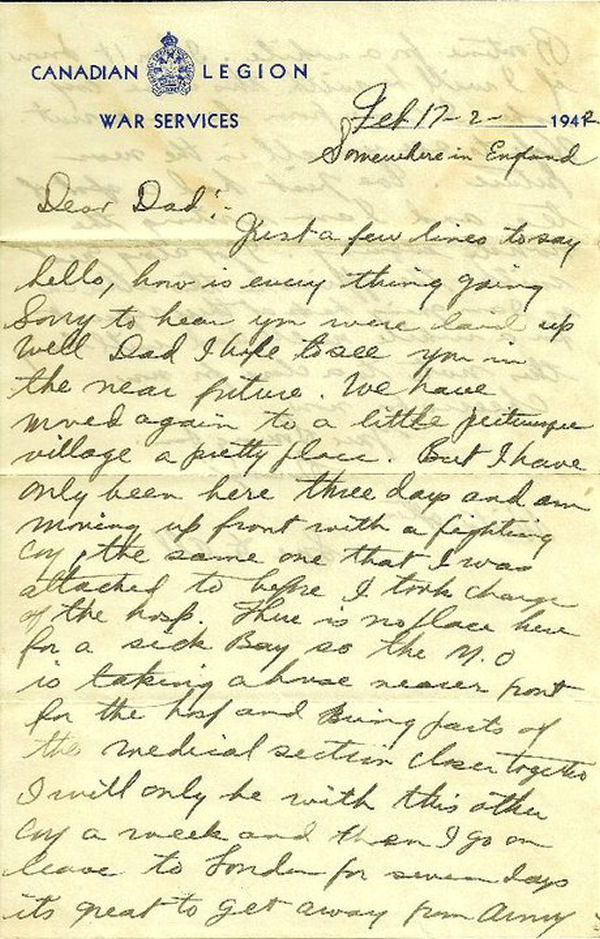 CANADIAN LEGION
WAR SERVICES
Feb 17-2- 1942
Somewhere in England
Dear Dad:-
Just a few lines to say
hello, how is every thing going
Sorry to hear you were laid up
Well Dad I hope to see you in
the near future. We have
moved again to a little
village a pretty place. But I have
only been here three days and am
moving up front with a fighting
coy, the same one that I was
attached to before I took charge
of the hosp. There is no place here
for a sick Bay so the M.O
is taking a house nearer front
for the hosp and bring parts of
the medical section closer together
I will only be with this other
coy a week and then I go on
leave to London for seven days
its great to get away from Army